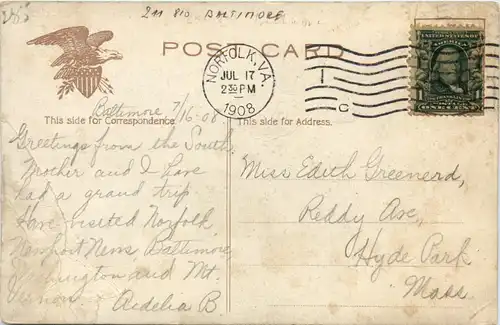 211 810 BALTIMORE
POST CARD
NORFOLK, VA.
JUL 17
2 30 PM
1908
C
Baltimore 7/16-08
This side for Correspondence.
Greetings from the South
Mother and I have
had a grand trip.
Have visited Norfolk,
Newport News, Baltimore,
Washington and Mt.
Vernon. Ardelia B.
This side for Address.
Miss Edith Greenerd,
Reddy Ave,
Hyde Park
Mass.